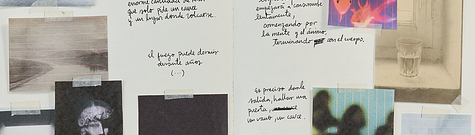 enorme cantidad de
que solo pide un cauce
y un lugar donde volcarse.
el fuego puede dormir
durante años
(...)
empezará a consumirse
lentamente,
comenzando por
la mente y el ánimo,
terminando con el cuerpo.
Es preciso darle
salida, hallar una
puerta,
un vaso, un cauce.